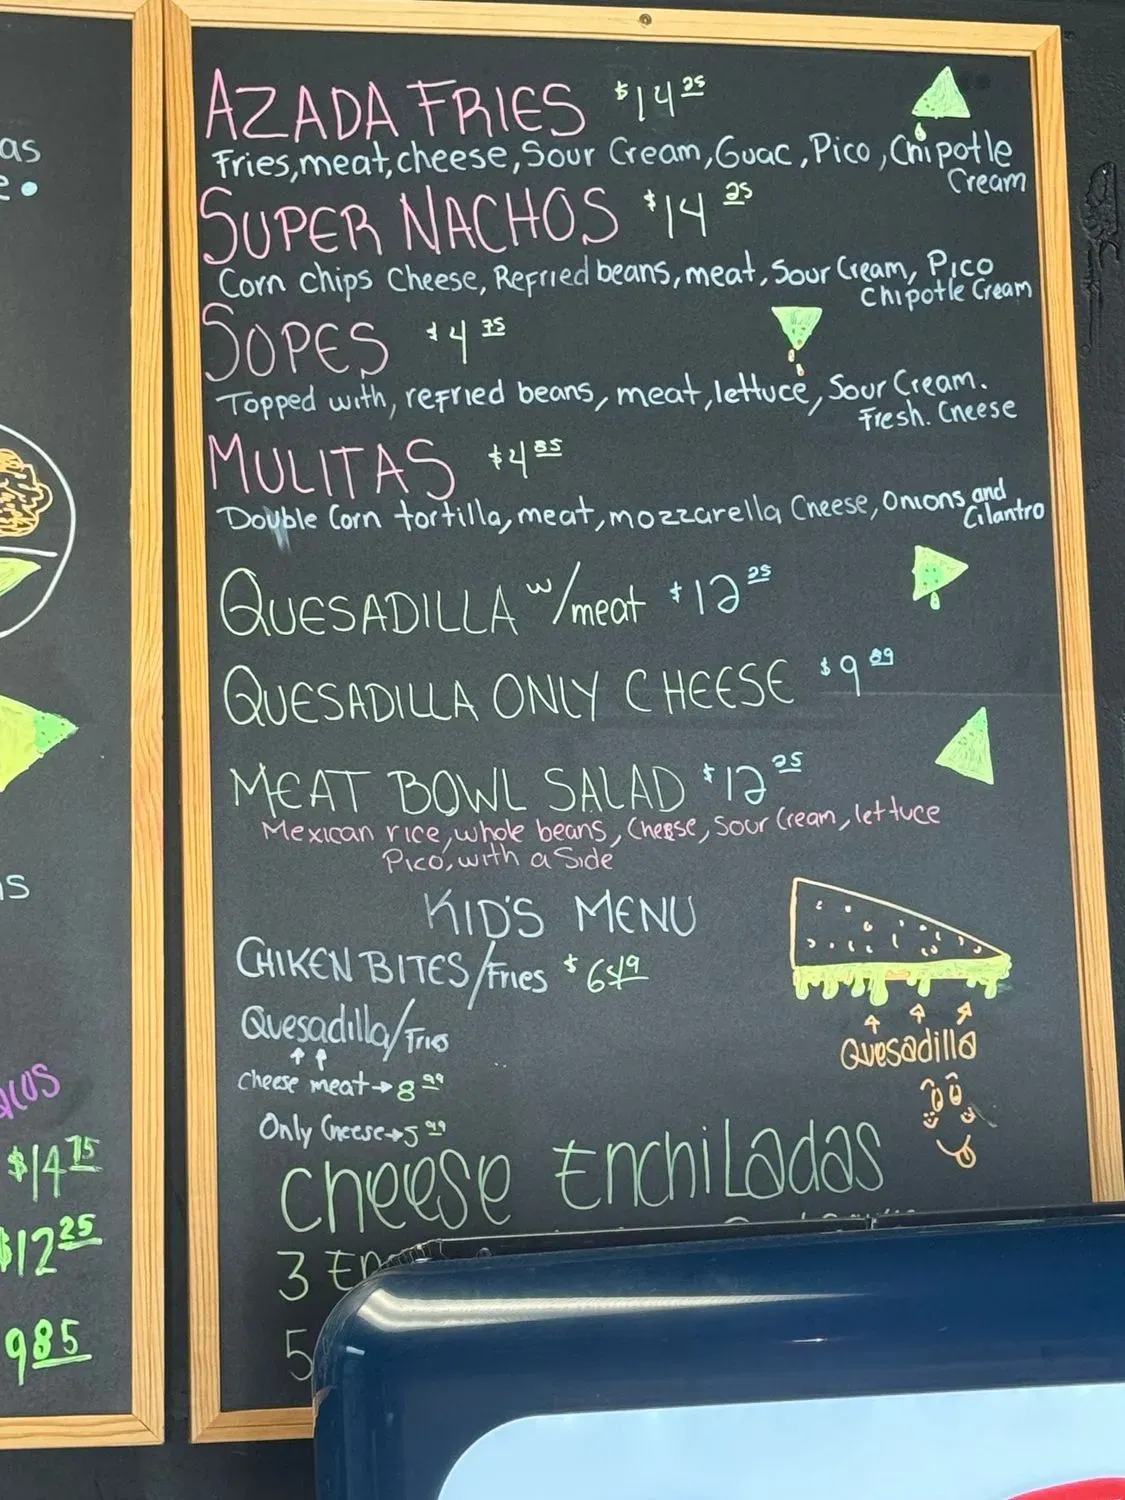 as
AZADA FRIES $14 25
Fries, meat, cheese, Sour Cream, Guac, Pico, Chipotle
Cream
SUPER NACHOS $14 25
Corn chips Cheese, Refried beans, meat, Sour Cream, Pico
Chipotle Cream
SOPES $4 75
Topped with, refried beans, meat, lettuce, Sour Cream.
Fresh. Cheese
MULITAS $4 85
Double Corn tortilla, meat, mozzarella Cheese, Onions and
Cilantro
QUESADILLA w/meat $12 25
QUESADILLA ONLY CHEESE $9 89
MEAT BOWL SALAD $12 25
Mexican rice, whole beans, Cheese, Sour Cream, lettuce
Pico, with a Side
KID'S MENU
CHIKEN BITES/Fries $6 49
Quesadilla/Fries
Cheese meat→8 99
Only Cheese→5 99
Quesadilla
Cheese EnchiLadas
3
5
$14 75
$12 25
9 85